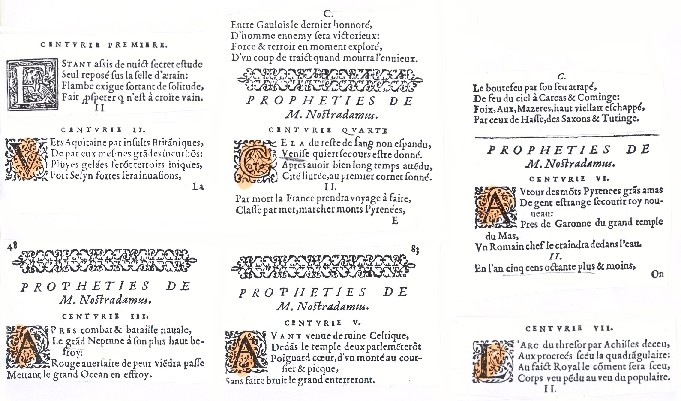 CENTVRIE PREMIERE.
ESTANT assis de nuict secret estude
Seul reposé sus la selle d'ærain:
Flambe exigue sortant de solitude,
Fait ꝓsperer q n'est à croire vain.
II
CENTVRIE II.
VErs Aquitaine par insults Britãniques,
De par eux mesmes grãdes incursiõs:
Pluyes gelées ferõt terroirs iniques,
Port Selyn fortes fera inuasions,
La
48
PROPHETIES DE
M. Nostradamus.
CENTVRIE III.
APRES combat & bataille nauale,
Le grãd Neptune à son plus haut be-
froy
Rouge auersaire de peur viẽdra pasle
Mettant le grand Ocean en effroy.
C.
Entre Gaulois le dernier honnoré,
D'homme ennemy sera victorieux:
Force & terroir en moment exploré,
D'vn coup de traict quand mourra l'enuieux.
PROPHETIES DE
M. Nostradamus.
CENTVRIE QVARTE
CELA du reste de sang non espandu,
Venise quiert secours estre donné.
Apres auoir bien long temps attẽdu,
Cité liurée, au premier cornet sonné.
II.
Par mort la France prendra voyage à faire,
Classe par mer, marcher monts Pyrenées,
E
83
PROPHETIES DE
M. Nostradamus.
CENTVRIE V.
AVANT venue de ruine Celtique,
Dedãs le temple deux parlemẽterõt
Poignard cœur, d'vn monté au cour-
sier & picque,
Sans faire bruit le grand enterreront.
C.
Le boutefeu par son feu atrapé,
De feu du ciel à Carcas & Cominge:
Foix, Aux, Mazeres, haut vieillart eschappé,
Par ceux de Hasse, des Saxons & Turinge.
PROPHETIES DE
M. Nostradamus.
CENTVRIE VI.
AVtour des mõts Pyrenees grãs amas
De gent estrange secourir roy nou-
ueau:
Pres de Garonne du grand temple
du Mas,
Vn Romain chef le craindra dedans l'eau.
II.
En l'an cinq cens octante plus & moins,
On
CENTVRIE VII.
L'ARC du thresor par Achilles deceu,
Aux procreés sceu la quadrãgulaire:
Au faict Royal le cõment sera sceu,
Corps veu pẽdu au veu du populaire.
II.